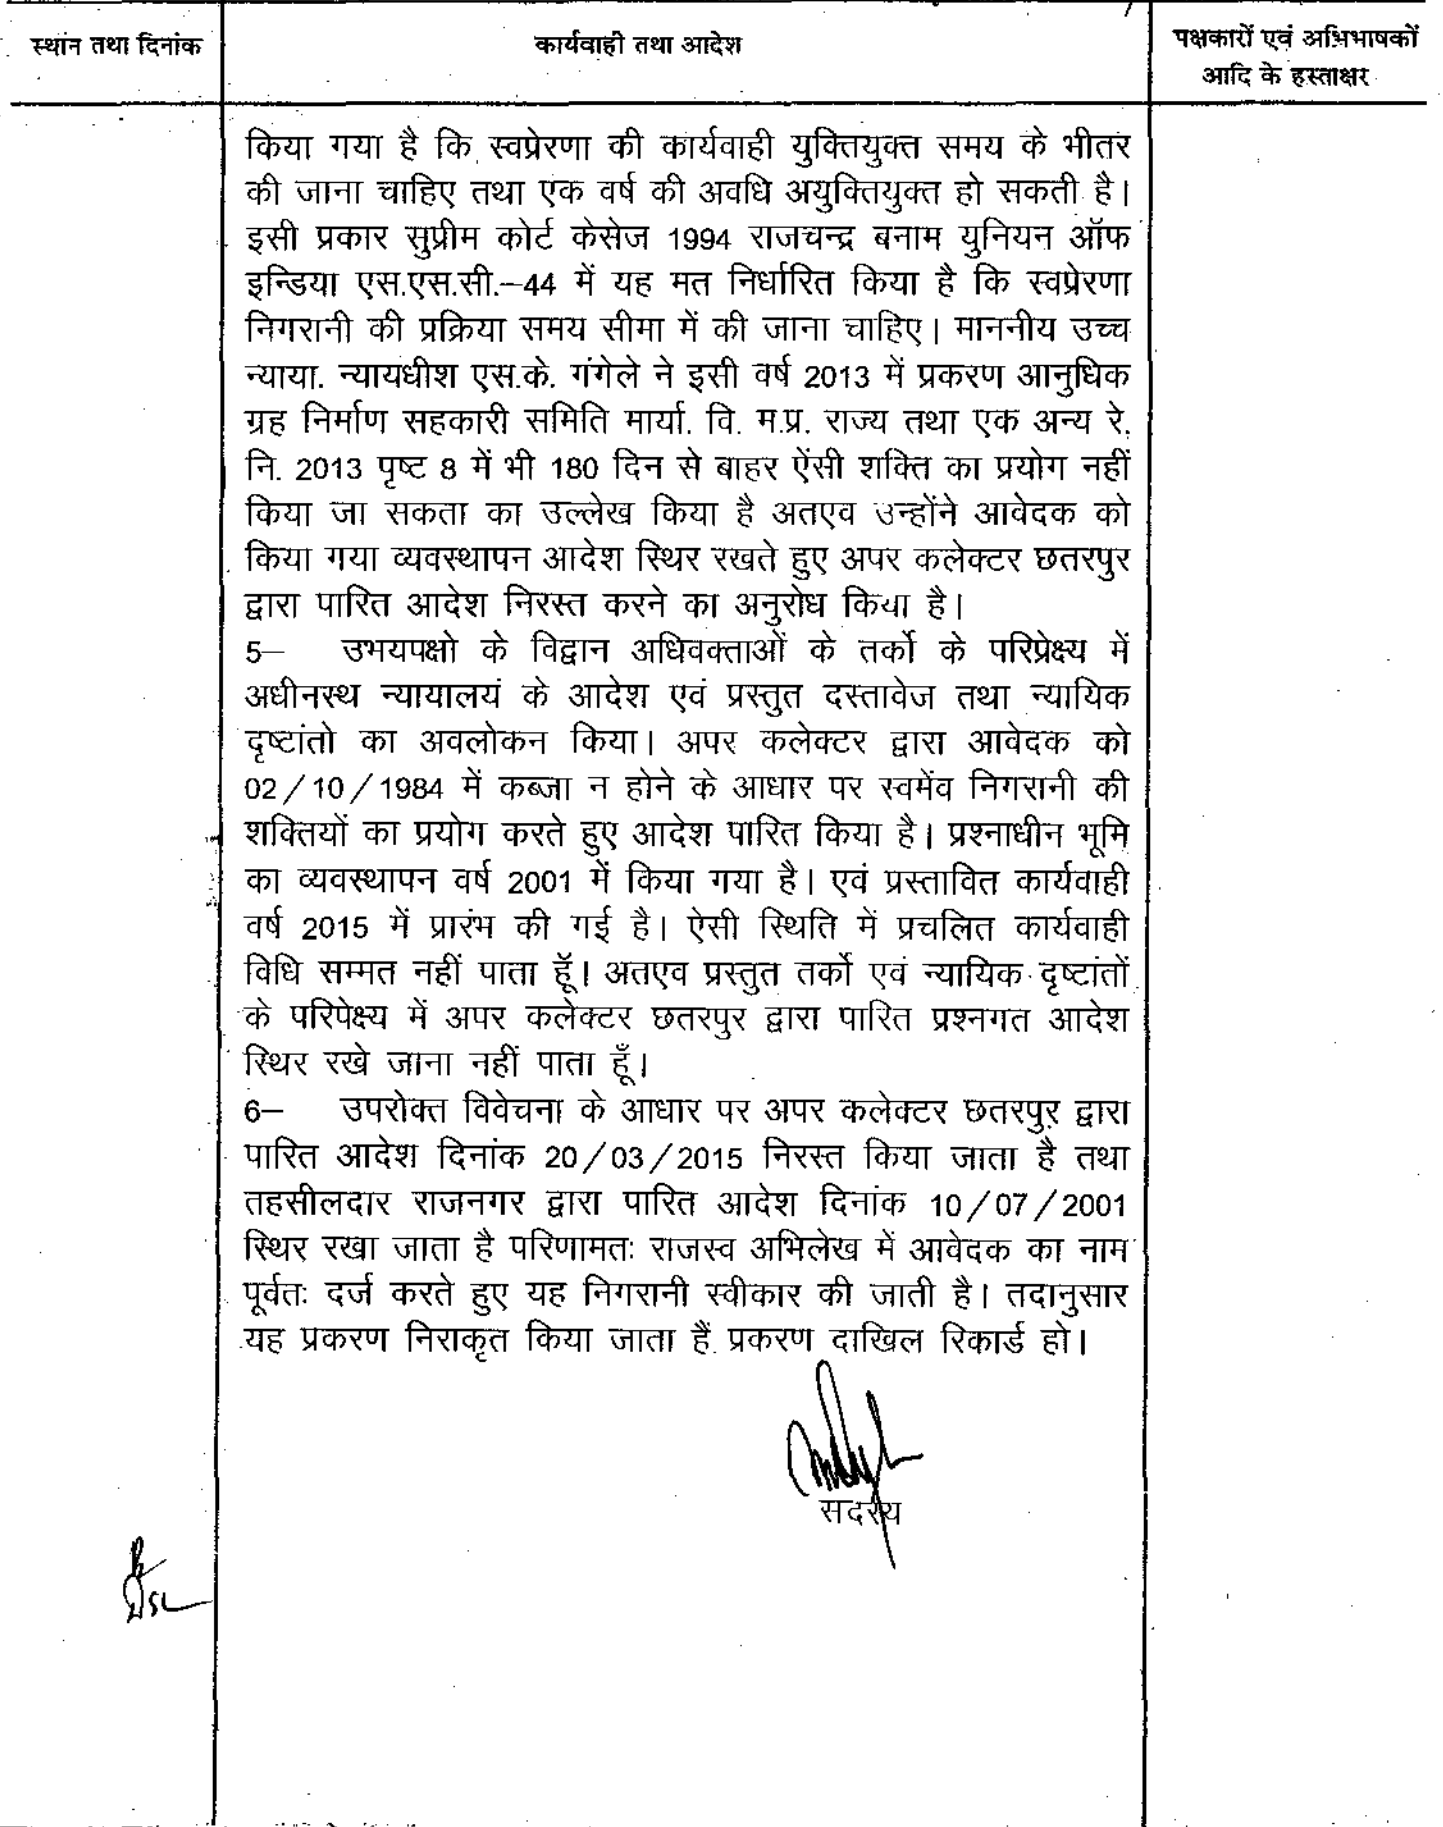 स्थान तथा दिनांक
कार्यवाही तथा आदेश
पक्षकारों एवं अभिभाषकों
आदि के हस्ताक्षर
किया गया है कि स्वप्रेरणा की कार्यवाही युक्तियुक्त समय के भीतर
की जाना चाहिए तथा एक वर्ष की अवधि अयुक्तियुक्त हो सकती है।
इसी प्रकार सुप्रीम कोर्ट केसेज 1994 राजचन्द्र बनाम युनियन ऑफ
इन्डिया एस.एस.सी.–44 में यह मत निर्धारित किया है कि स्वप्रेरणा
निगरानी की प्रक्रिया समय सीमा में की जाना चाहिए। माननीय उच्च
न्याया. न्यायधीश एस.के. गंगेले ने इसी वर्ष 2013 में प्रकरण आनुधिक
ग्रह निर्माण सहकारी समिति मार्या. वि. म.प्र. राज्य तथा एक अन्य रे.
नि. 2013 पृष्ट 8 में भी 180 दिन से बाहर ऐंसी शक्ति का प्रयोग नहीं
किया जा सकता का उल्लेख किया है अतएव उन्होंने आवेदक को
किया गया व्यवस्थापन आदेश स्थिर रखते हुए अपर कलेक्टर छतरपुर
द्वारा पारित आदेश निरस्त करने का अनुरोध किया है।
5– उभयपक्षो के विद्वान अधिवक्ताओं के तर्को के परिप्रेक्ष्य में
अधीनस्थ न्यायालयं के आदेश एवं प्रस्तुत दस्तावेज तथा न्यायिक
दृष्टांतो का अवलोकन किया। अपर कलेक्टर द्वारा आवेदक को
02/10/1984 में कब्जा न होने के आधार पर स्वमेंव निगरानी की
शक्तियों का प्रयोग करते हुए आदेश पारित किया है। प्रश्नाधीन भूमि
का व्यवस्थापन वर्ष 2001 में किया गया है। एवं प्रस्तावित कार्यवाही
वर्ष 2015 में प्रारंभ की गई है। ऐसी स्थिति में प्रचलित कार्यवाही
विधि सम्मत नहीं पाता हूॅ। अतएव प्रस्तुत तर्को एवं न्यायिक दृष्टांतों
के परिपेक्ष्य में अपर कलेक्टर छतरपुर द्वारा पारित प्रश्नगत आदेश
स्थिर रखे जाना नहीं पाता हूँ।
6– उपरोक्त विवेचना के आधार पर अपर कलेक्टर छतरपुर द्वारा
पारित आदेश दिनांक 20/03/2015 निरस्त किया जाता है तथा
तहसीलदार राजनगर द्वारा पारित आदेश दिनांक 10/07/2001
स्थिर रखा जाता है परिणामतः राजस्व अभिलेख में आवेदक का नाम
पूर्वतः दर्ज करते हुए यह निगरानी स्वीकार की जाती है। तदानुसार
यह प्रकरण निराकृत किया जाता हैं प्रकरण दाखिल रिकार्ड हो।
सदस्य